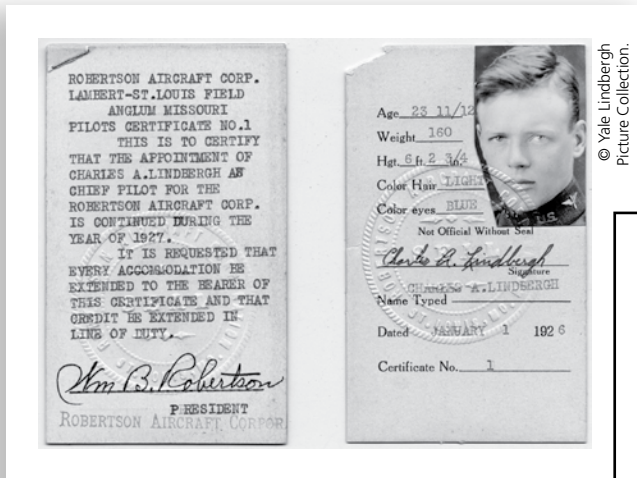 ROBERTSON AIRCRAFT CORP.
LAMBERT-ST.LOUIS FIELD
ANGLUM MISSOURI
PILOTS CERTIFICATE NO.1
THIS IS TO CERTIFY
THAT THE APPOINTMENT OF
CHARLES A.LINDBERGH AS
CHIEF PILOT FOR THE
ROBERTSON AIRCRAFT CORP.
IS CONTINUED DURING THE
YEAR OF 1927.
IT IS REQUESTED THAT
EVERY ACCOMMODATION BE
EXTENDED TO THE BEARER OF
THIS CERTIFICATE AND THAT
CREDIT BE EXTENDED IN
LINE OF DUTY.
Wm B. Robertson
PRESIDENT
ROBERTSON AIRCRAFT CORPOR
Age 23 11/12
Weight 160
Hgt. 6 ft. 2 3/4 in.
Color Hair LIGHT
Color eyes BLUE
U.S.
Not Official Without Seal
Charles A. Lindbergh
Signature
CHARLES A.LINDBERGH
Name Typed
Dated JANUARY 1 1926
Certificate No. 1
© Yale Lindbergh
Picture Collection.